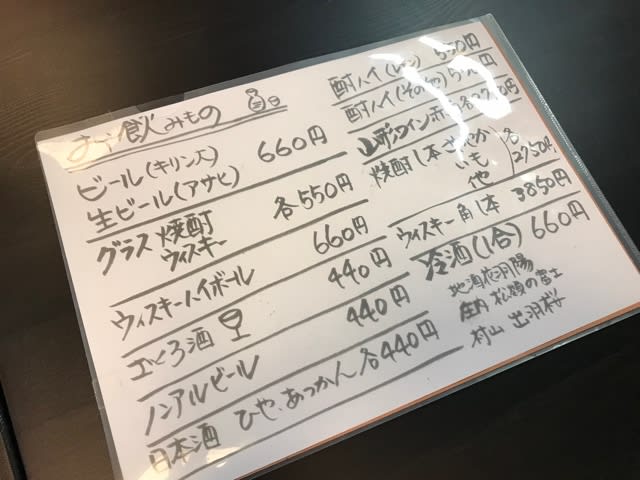 お飲みもの
ビール(キリン大) 660円
生ビール(アサヒ)
グラス 焼酎 各550円
ウィスキー
ウィスキーハイボール 660円
ざくろ酒 440円
ノンアルビール 440円
日本酒 ひや、あつかん 各440円
酎ハイ(レモン) 550円
酎ハイ(その他) 550円
山形ワイン 赤
焼酎1本 さつやか 各2750円
いも
他
ウィスキー 角1本 3850円
冷酒(1合) 660円
地酒 夜羽陽
庄内 松嶺の富士
村山 出羽桜